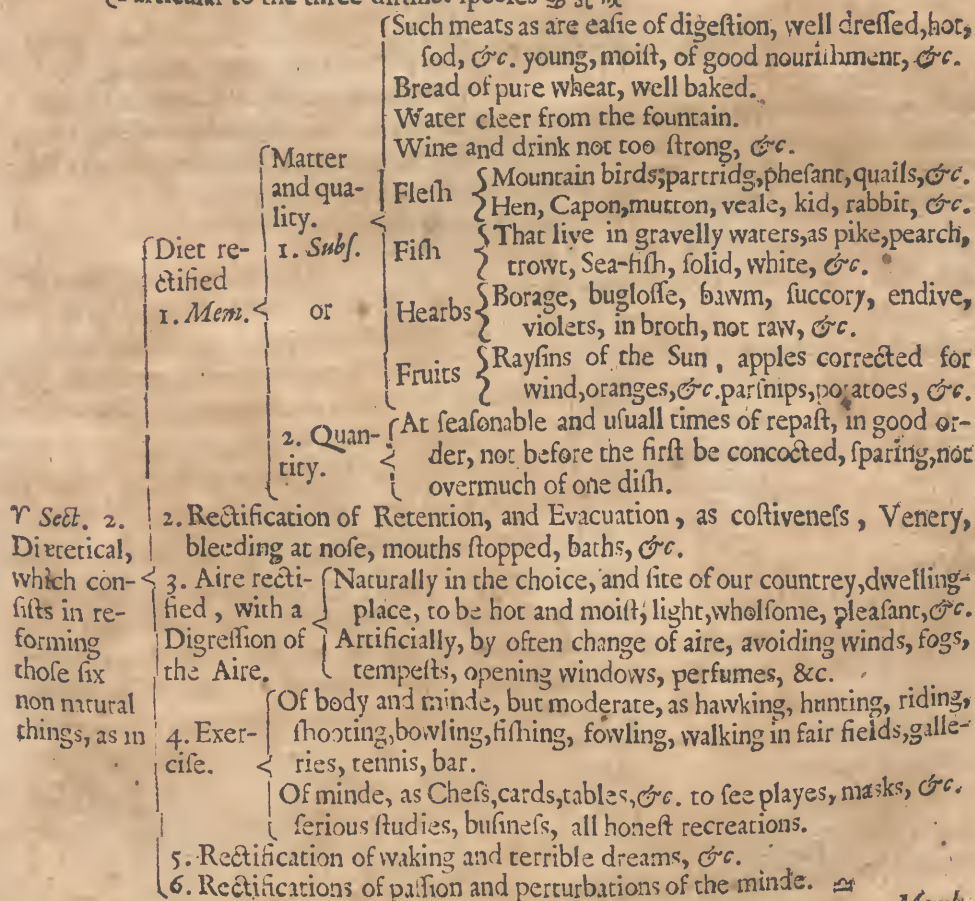 (Particular to the three distinct species ♋ ♌ ♍
Such meats as are easie of digeſtion, well dreſſed, hot,
ſod, &c. young, moiſt, of good nouriſhment, &c.
Bread of pure wheat, well baked.
Water cleer from the fountain.
Wine and drink not too ſtrong, &c.
Matter
and qua-
lity.
1. Subſ.
Fleſh
Mountain birds; partridg, pheſant, quails, &c.
Hen, Capon, mutton, veale, kid, rabbit, &c.
Diet re-
ctified
1. Mem.
or
Fiſh
That live in gravelly waters, as pike, pearch,
trowt, Sea-fiſh, ſolid, white, &c.
Hearbs
Borage, bugloſſe, bawm, ſuccory, endive,
violets, in broth, not raw, &c.
Fruits
Rayſins of the Sun, apples corrected for
wind, oranges, &c. parſnips, potatoes, &c.
2. Quan-
tity.
At ſeaſonable and uſuall times of repaſt, in good or-
der, not before the firſt be concocted, ſparing, not
overmuch of one diſh.
♈ Sect. 2.
Dietetical,
which con-
ſiſts in re-
forming
thoſe ſix
non natural
things, as in
2. Rectification of Retention, and Evacuation, as coſtiveneſs, Venery,
bleeding at noſe, mouths ſtopped, baths, &c.
3. Aire recti-
fied, with a
Digreſſion of
the Aire.
Naturally in the choice, and ſite of our countrey, dwelling-
place, to be hot and moiſt, light, wholſome, pleaſant, &c.
Artificially, by often change of aire, avoiding winds, fogs,
tempeſts, opening windows, perfumes, &c.
4. Exer-
ciſe.
Of body and minde, but moderate, as hawking, hunting, riding,
ſhooting, bowling, fiſhing, fowling, walking in fair fields, galle-
ries, tennis, bar.
Of minde, as Cheſs, cards, tables, &c. to ſee playes, masks, &c.
ſerious ſtudies, buſineſs, all honeſt recreations.
5. Rectification of waking and terrible dreams, &c.
6. Rectifications of paſſion and perturbations of the minde. ♎